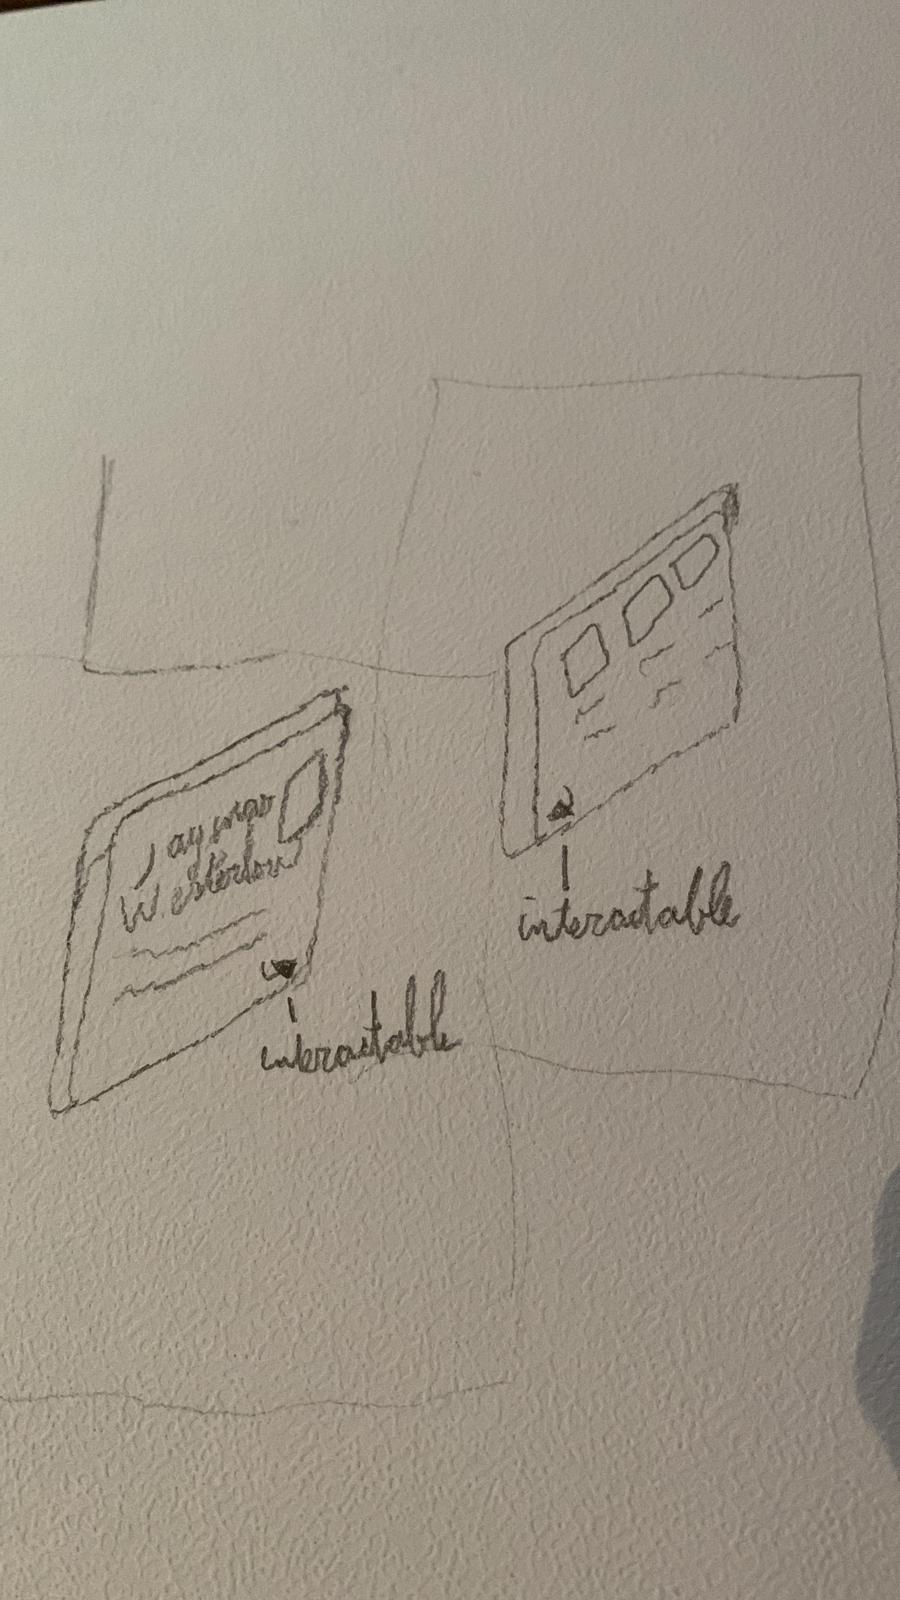 Jaymar
Westerlou
interactable
interactable